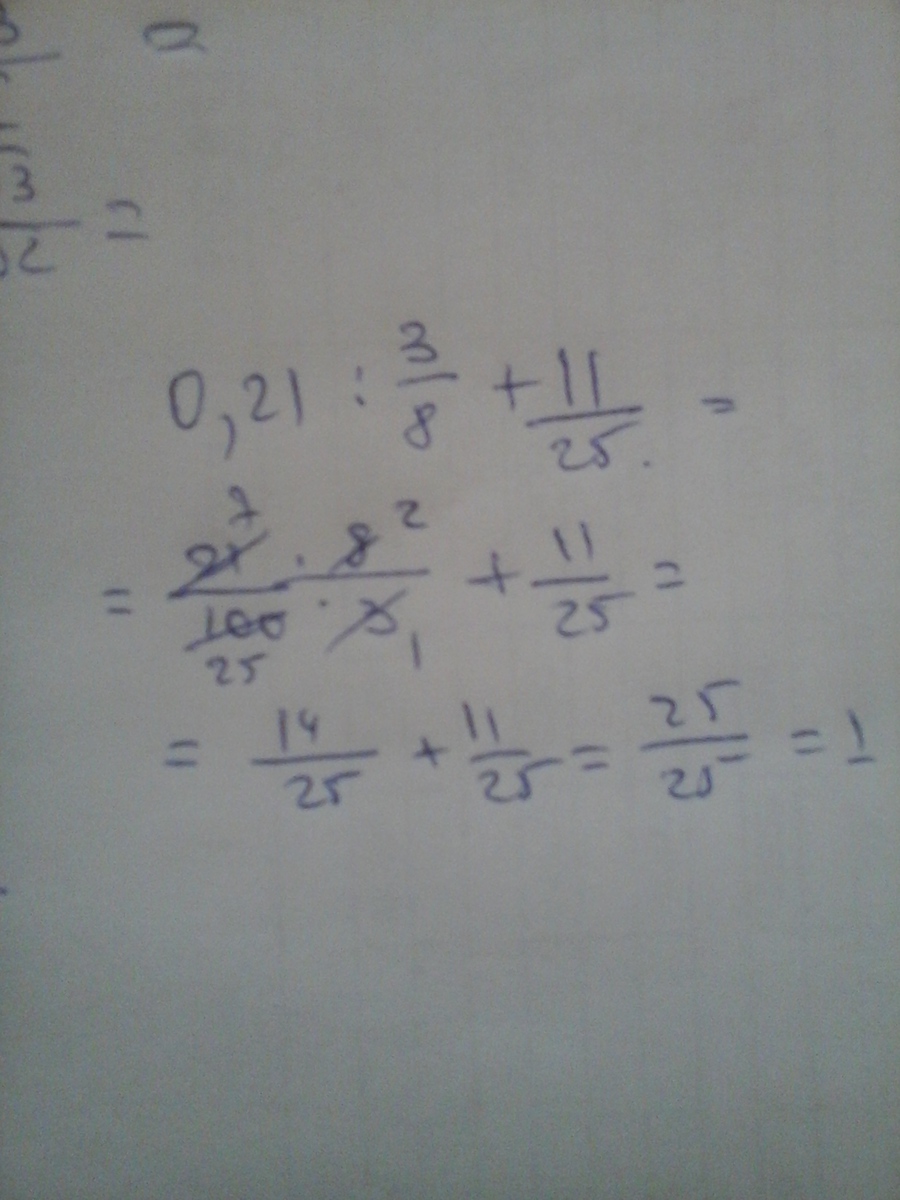 3/2 =
0,21 : 3/8 + 11/25 =
= 21 7 · 8 2 / 100 25 · 3 1 + 11/25 =
= 14/25 + 11/25 = 25/25 = 1